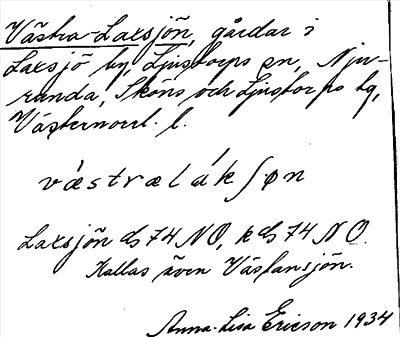 Västra-Laxsjön, gårdar i
Laxsjö by, Ljustorps sn, Nju-
runda, Sköns och Ljustorps tg,
Västernorrl. l.
vástrælák∫øn
Laxsjön ds 74 NO, k ds 74 NO.
Kallas även Västansjön.
Anna-Lisa Ericson 1934